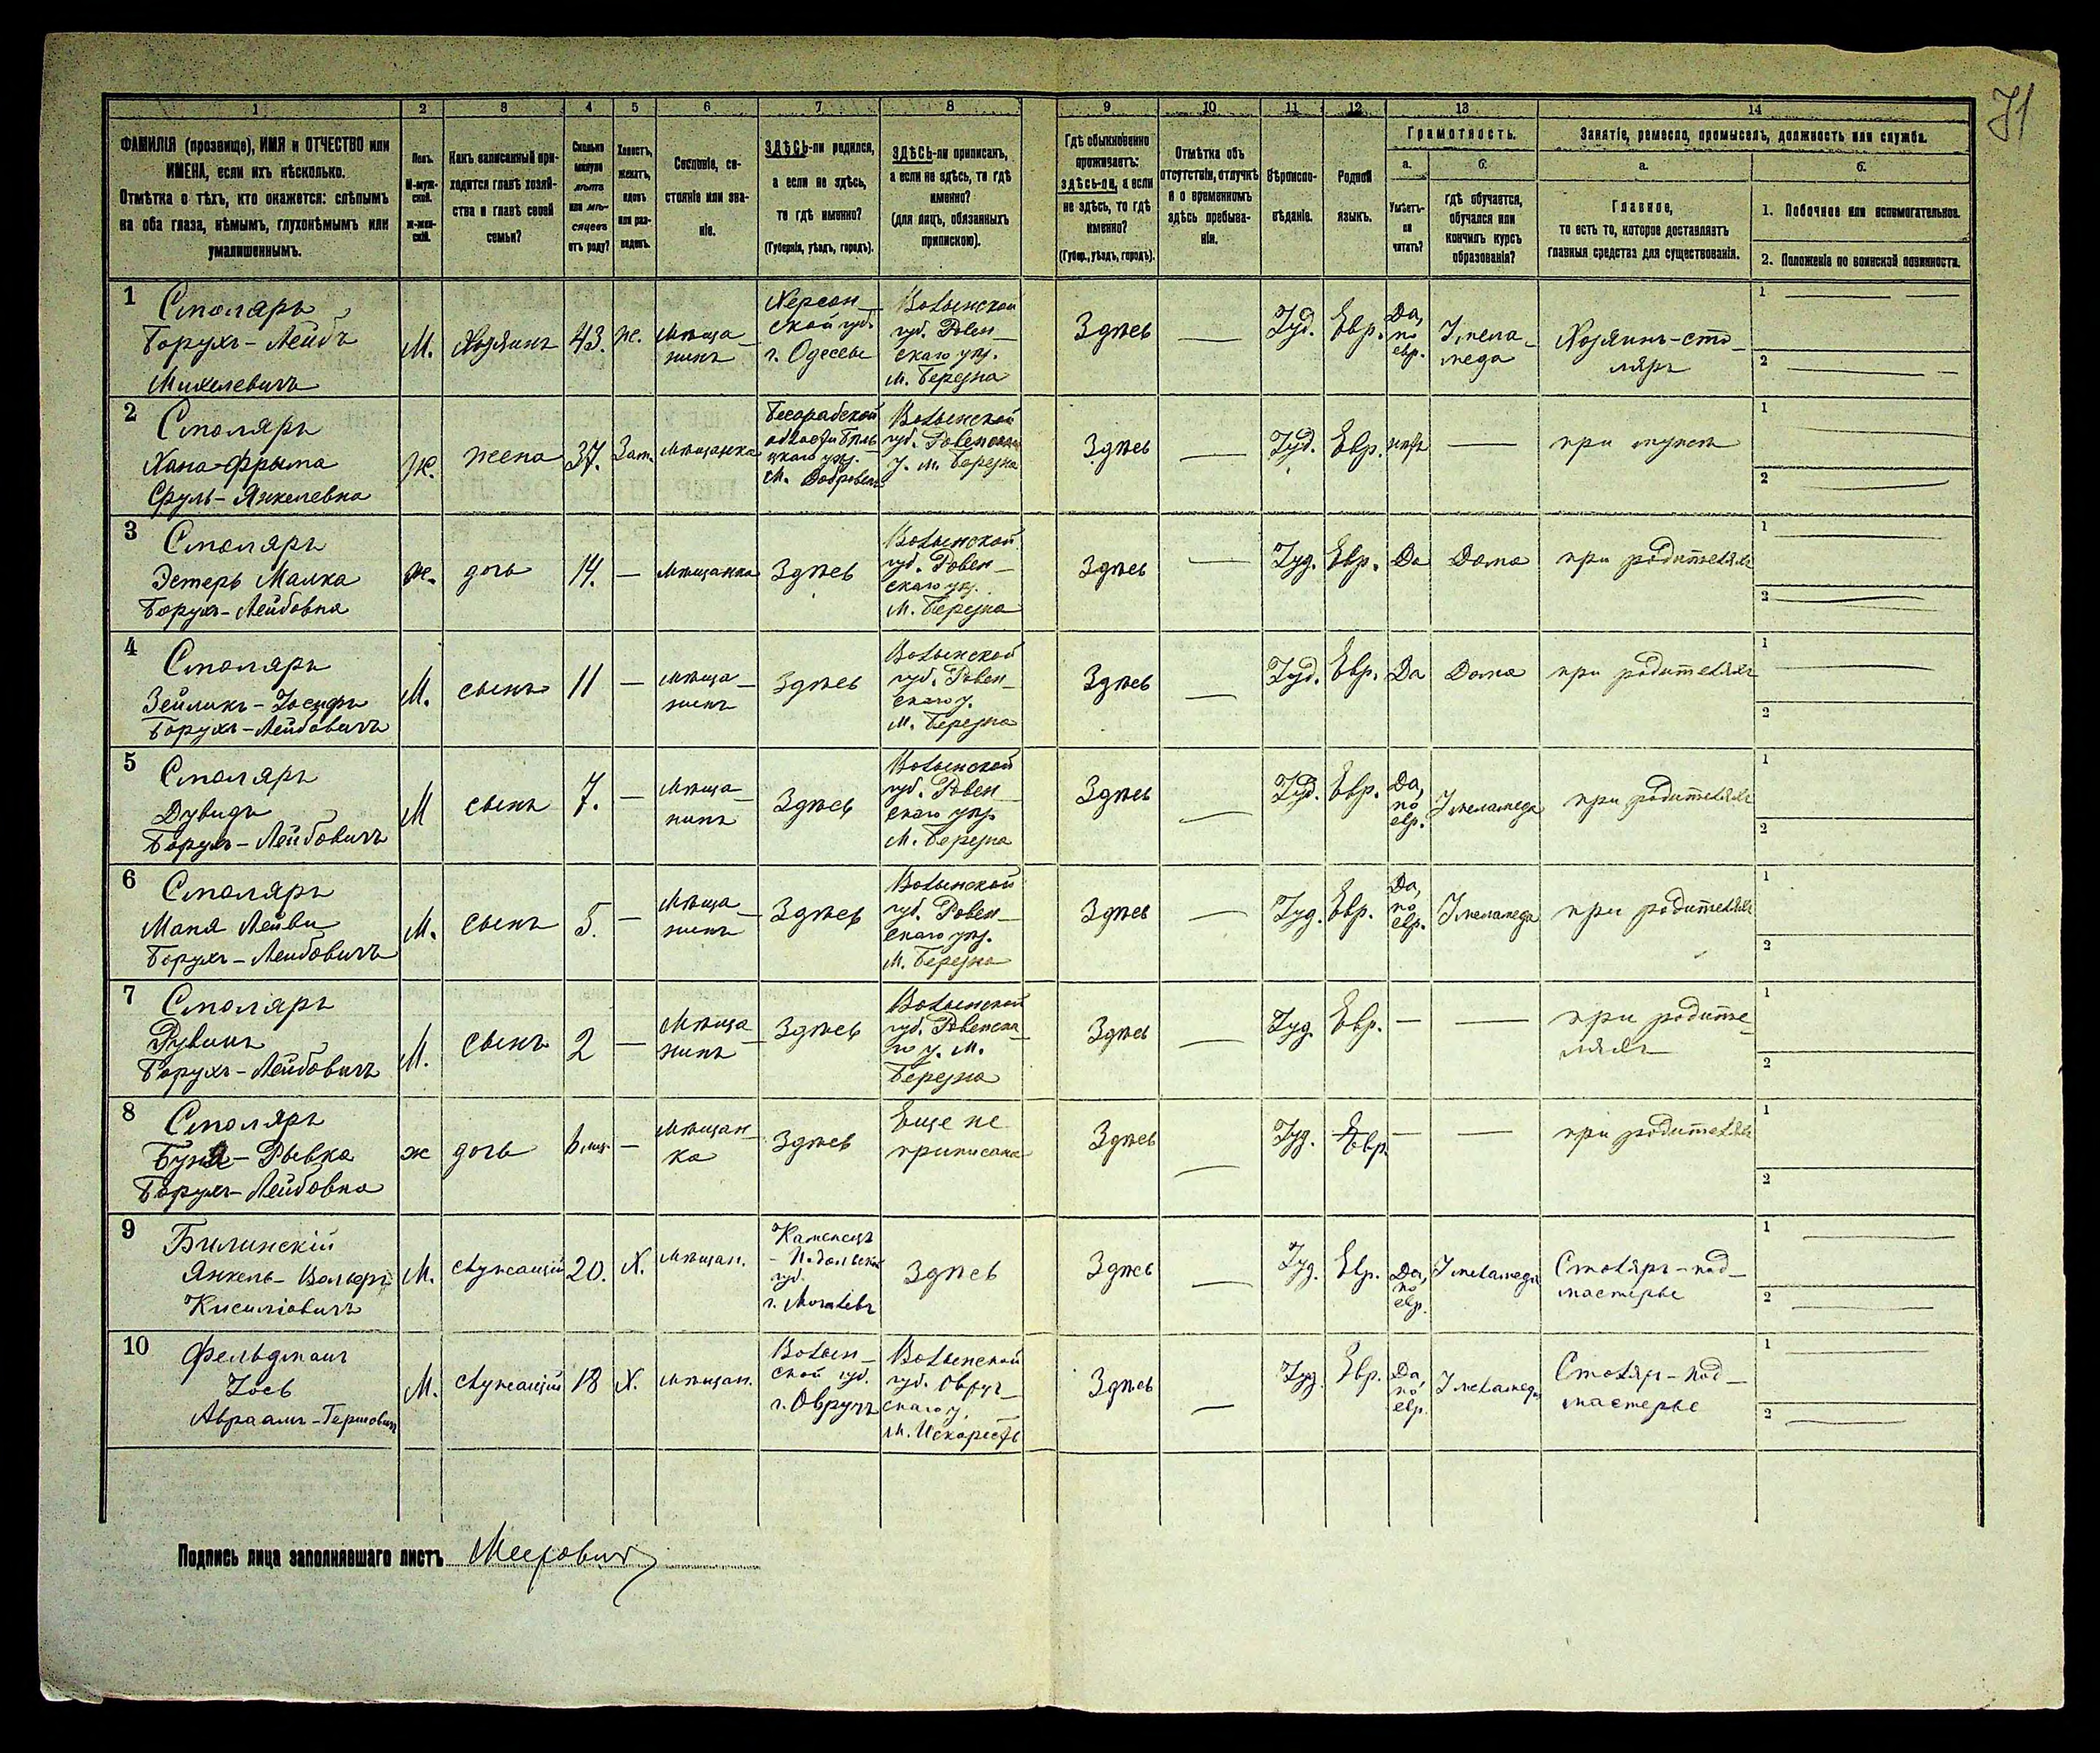 71
1 2 3 4 5 6 7 8 9 10 11 12 13 14
ФАМИЛІЯ (прозвище), ИМЯ и ОТЧЕСТВО или
ИМЕНА, если ихъ нѣсколько.
Отмѣтка о тѣхъ, кто окажется: слѣпымъ
на оба глаза, нѣмымъ, глухонѣмымъ или
умалишеннымъ.
Полъ.
М-муж-
ской.
Ж-жен-
скій.
Какъ записанный при-
ходится главѣ хозяй-
ства и главѣ своей
семьи?
Сколько
минуло
лѣтъ
или мѣ-
сяцевъ
отъ роду?
Холостъ,
женатъ,
вдовъ
или раз-
веденъ.
Сословіе, со-
стояніе или зва-
ніе.
ЗДѢСЬ-ли родился,
а если не здѣсь,
то гдѣ именно?
(Губернія, уѣздъ, городъ).
ЗДѢСЬ-ли приписанъ,
а если не здѣсь, то гдѣ
именно?
(для лицъ, обязанныхъ
припискою).
Гдѣ обыкновенно
проживаетъ:
здѣсь-ли, а если
не здѣсь, то гдѣ
именно?
(Губер., уѣздъ, городъ).
Отмѣтка объ
отсутствіи, отлучкѣ
и о временномъ
здѣсь пребыва-
ніи.
Вѣроиспо-
вѣданіе.
Родной
языкъ.
Грамотность.
а.
Умѣетъ-
ли
читать?
б.
гдѣ обучается,
обучался или
кончилъ курсъ
образованія?
Занятіе, ремесло, промыселъ, должность или служба.
а.
Главное,
то есть то, которое доставляетъ
главныя средства для существованія.
б.
1. Побочное или вспомогательное.
2. Положеніе по воинской повинности.
1
Столяръ
Борухъ-Лейбъ
Михелевичъ
М.
Хозяинъ
43.
ж.
мѣща-
нинъ
Херсон-
ской губ.
г. Одессѣ
Волынской
губ. Ровен-
скаго уѣз.
м. Березна
Здѣсь
—
Іуд.
Евр.
Да,
по
евр.
У мела-
меда
Хозяинъ-сто-
ляръ
1 —
2 —
2
Столяръ
Хана-Фрыма
Сруль-Янкелевна
Ж.
жена
37.
Зам.
мѣщанка
Бесарабской
области Бѣль-
цкаго уѣз.
Волынской
губ. Ровенскаго
у. м. Березна
Здѣсь
—
Іуд.
Евр.
нѣтъ
—
при мужѣ
1
2 —
3
Столяръ
Эстеръ Малка
Борухъ-Лейбовна
ж.
дочь
14.
—
мѣщанка
Здѣсь
Волынской
губ. Ровен-
скаго уѣз.
м. Березна
Здѣсь
—
Іуд.
Евр.
Да
Дома
при родителяхъ
1 —
2 —
4
Столяръ
Зейликъ-Іосифъ
Борухъ-Лейбовичъ
М.
сынъ
11
—
мѣща-
нинъ
Здѣсь
Волынской
губ. Ровен-
скаго у.
м. Березна
Здѣсь
—
Іуд.
Евр.
Да
Дома
при родителяхъ
1 —
2 —
5
Столяръ
Дувидъ
Борухъ-Лейбовичъ
М
сынъ
7.
—
мѣща-
нинъ
Здѣсь
Волынской
губ. Ровен-
скаго уѣз.
м. Березна
Здѣсь
—
Іуд.
Евр.
Да,
по
евр.
У меламеда
при родителяхъ
1 —
2 —
6
Столяръ
Борухъ-Лейбовичъ
М.
сынъ
5.
—
мѣща-
нинъ
Здѣсь
Волынской
губ. Ровен-
скаго уѣз.
м. Березна
Здѣсь
—
Іуд.
Евр.
Да,
по
евр.
У меламеда
при родителяхъ
1 —
2 —
7
Столяръ
Рувинъ
Борухъ-Лейбовичъ
М.
сынъ
2
—
мѣща-
нинъ
Здѣсь
Волынской
губ. Ровенска-
го у. м.
Березна
Здѣсь
—
Іуд.
Евр.
—
—
при родите-
ляхъ
1 —
2 —
8
Столяръ
Буня-Рывка
Борухъ-Лейбовна
ж
дочь
6 мѣс.
—
мѣщан-
ка
Здѣсь
Еще не
приписана
Здѣсь
—
Іуд.
Евр.
—
—
при родителяхъ
1 —
2 —
9
Билинскій
М.
служащій
20.
Х.
мѣщан.
Каменецъ
-Подольской
губ.
г. Могилевъ
Здѣсь
Здѣсь
—
Іуд.
Евр.
Да,
по
евр.
У меламеда
Столяръ-под-
мастерье
1 —
2 —
10
Фельдманъ
Іось
Авраамъ-Гершовичъ
М.
служащій
18
Х.
мѣщан.
Волын-
ской губ.
г. Овручъ
Волынской
губ. Овруч-
скаго у.
м. Искорость
Здѣсь
—
Іуд.
Евр.
Да,
по
евр.
У меламеда
Столяръ-под-
мастерье
1 —
2 —
Подпись лица заполнявшаго листъ Меерович